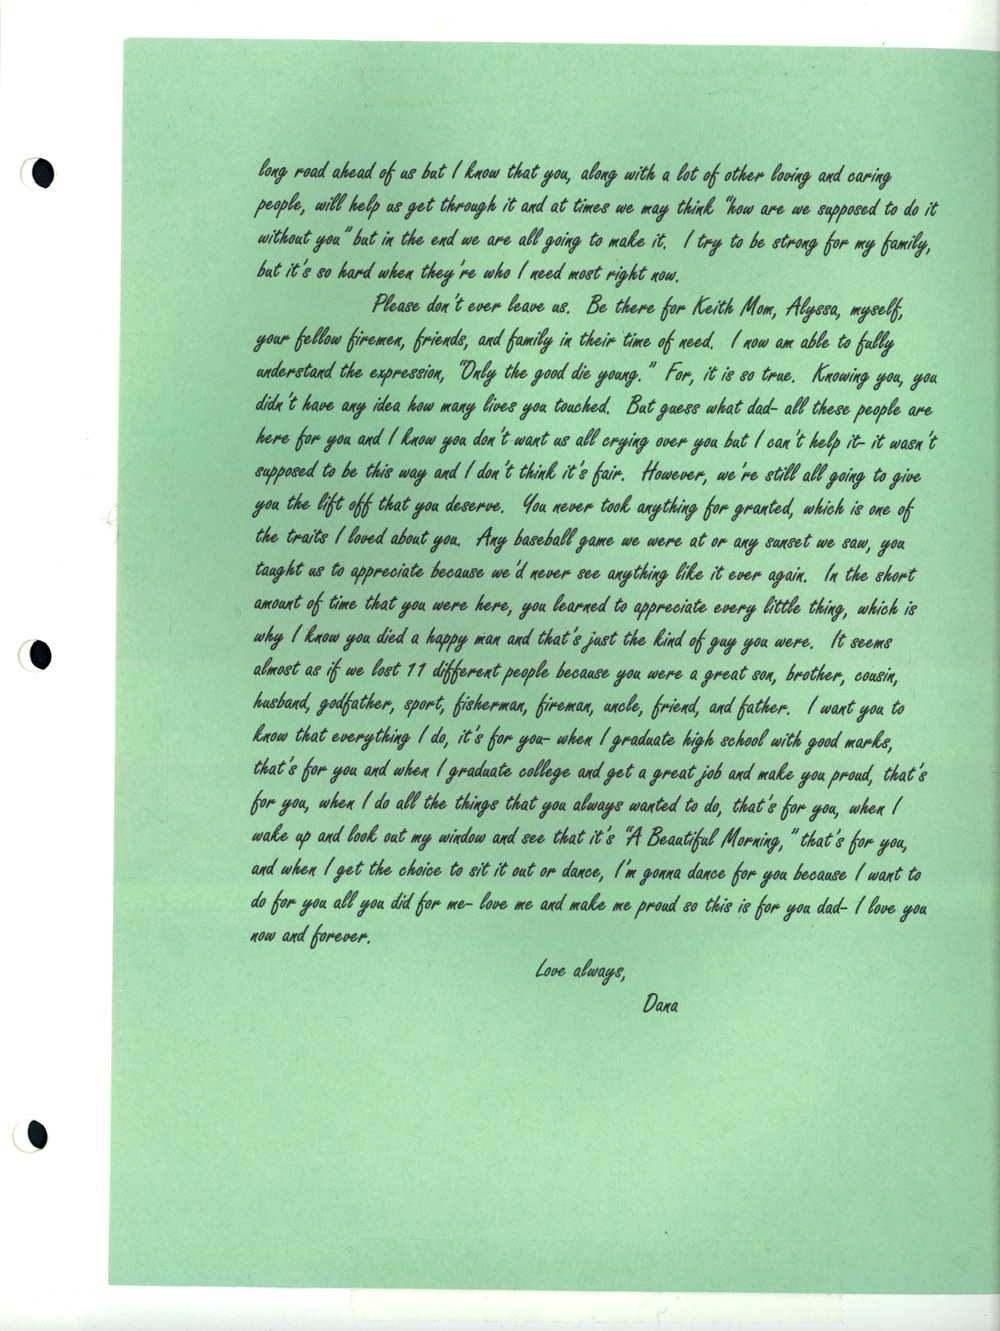 long road ahead of us but I know that you, along with a lot of other loving and caring
people, will help us get through it and at times we may think "how are we supposed to do it
without you" but in the end we are all going to make it. I try to be strong for my family,
but it's so hard when they're who I need most right now.
Please don't ever leave us. Be there for Keith Mom, Alyssa, myself,
your fellow firemen, friends, and family in their time of need. I now am able to fully
understand the expression, "Only the good die young." For, it is so true. Knowing you, you
didn't have any idea how many lives you touched. But guess what dad- all these people are
here for you and I know you don't want us all crying over you but I can't help it- it wasn't
supposed to be this way and I don't think it's fair. However, we're still all going to give
you the lift off that you deserve. You never took anything for granted, which is one of
the traits I loved about you. Any baseball game we were at or any sunset we saw, you
taught us to appreciate because we'd never see anything like it ever again. In the short
amount of time that you were here, you learned to appreciate every little thing, which is
why I know you died a happy man and that's just the kind of guy you were. It seems
almost as if we lost 11 different people because you were a great son, brother, cousin,
husband, godfather, sport, fisherman, fireman, uncle, friend, and father. I want you to
know that everything I do, it's for you- when I graduate high school with good marks,
that's for you and when I graduate college and get a great job and make you proud, that's
for you, when I do all the things that you always wanted to do, that's for you, when I
wake up and look out my window and see that it's "A Beautiful Morning," that's for you,
and when I get the choice to sit it out or dance, I'm gonna dance for you because I want to
do for you all you did for me- love me and make me proud so this is for you dad- I love you
now and forever.
Love always,
Dana